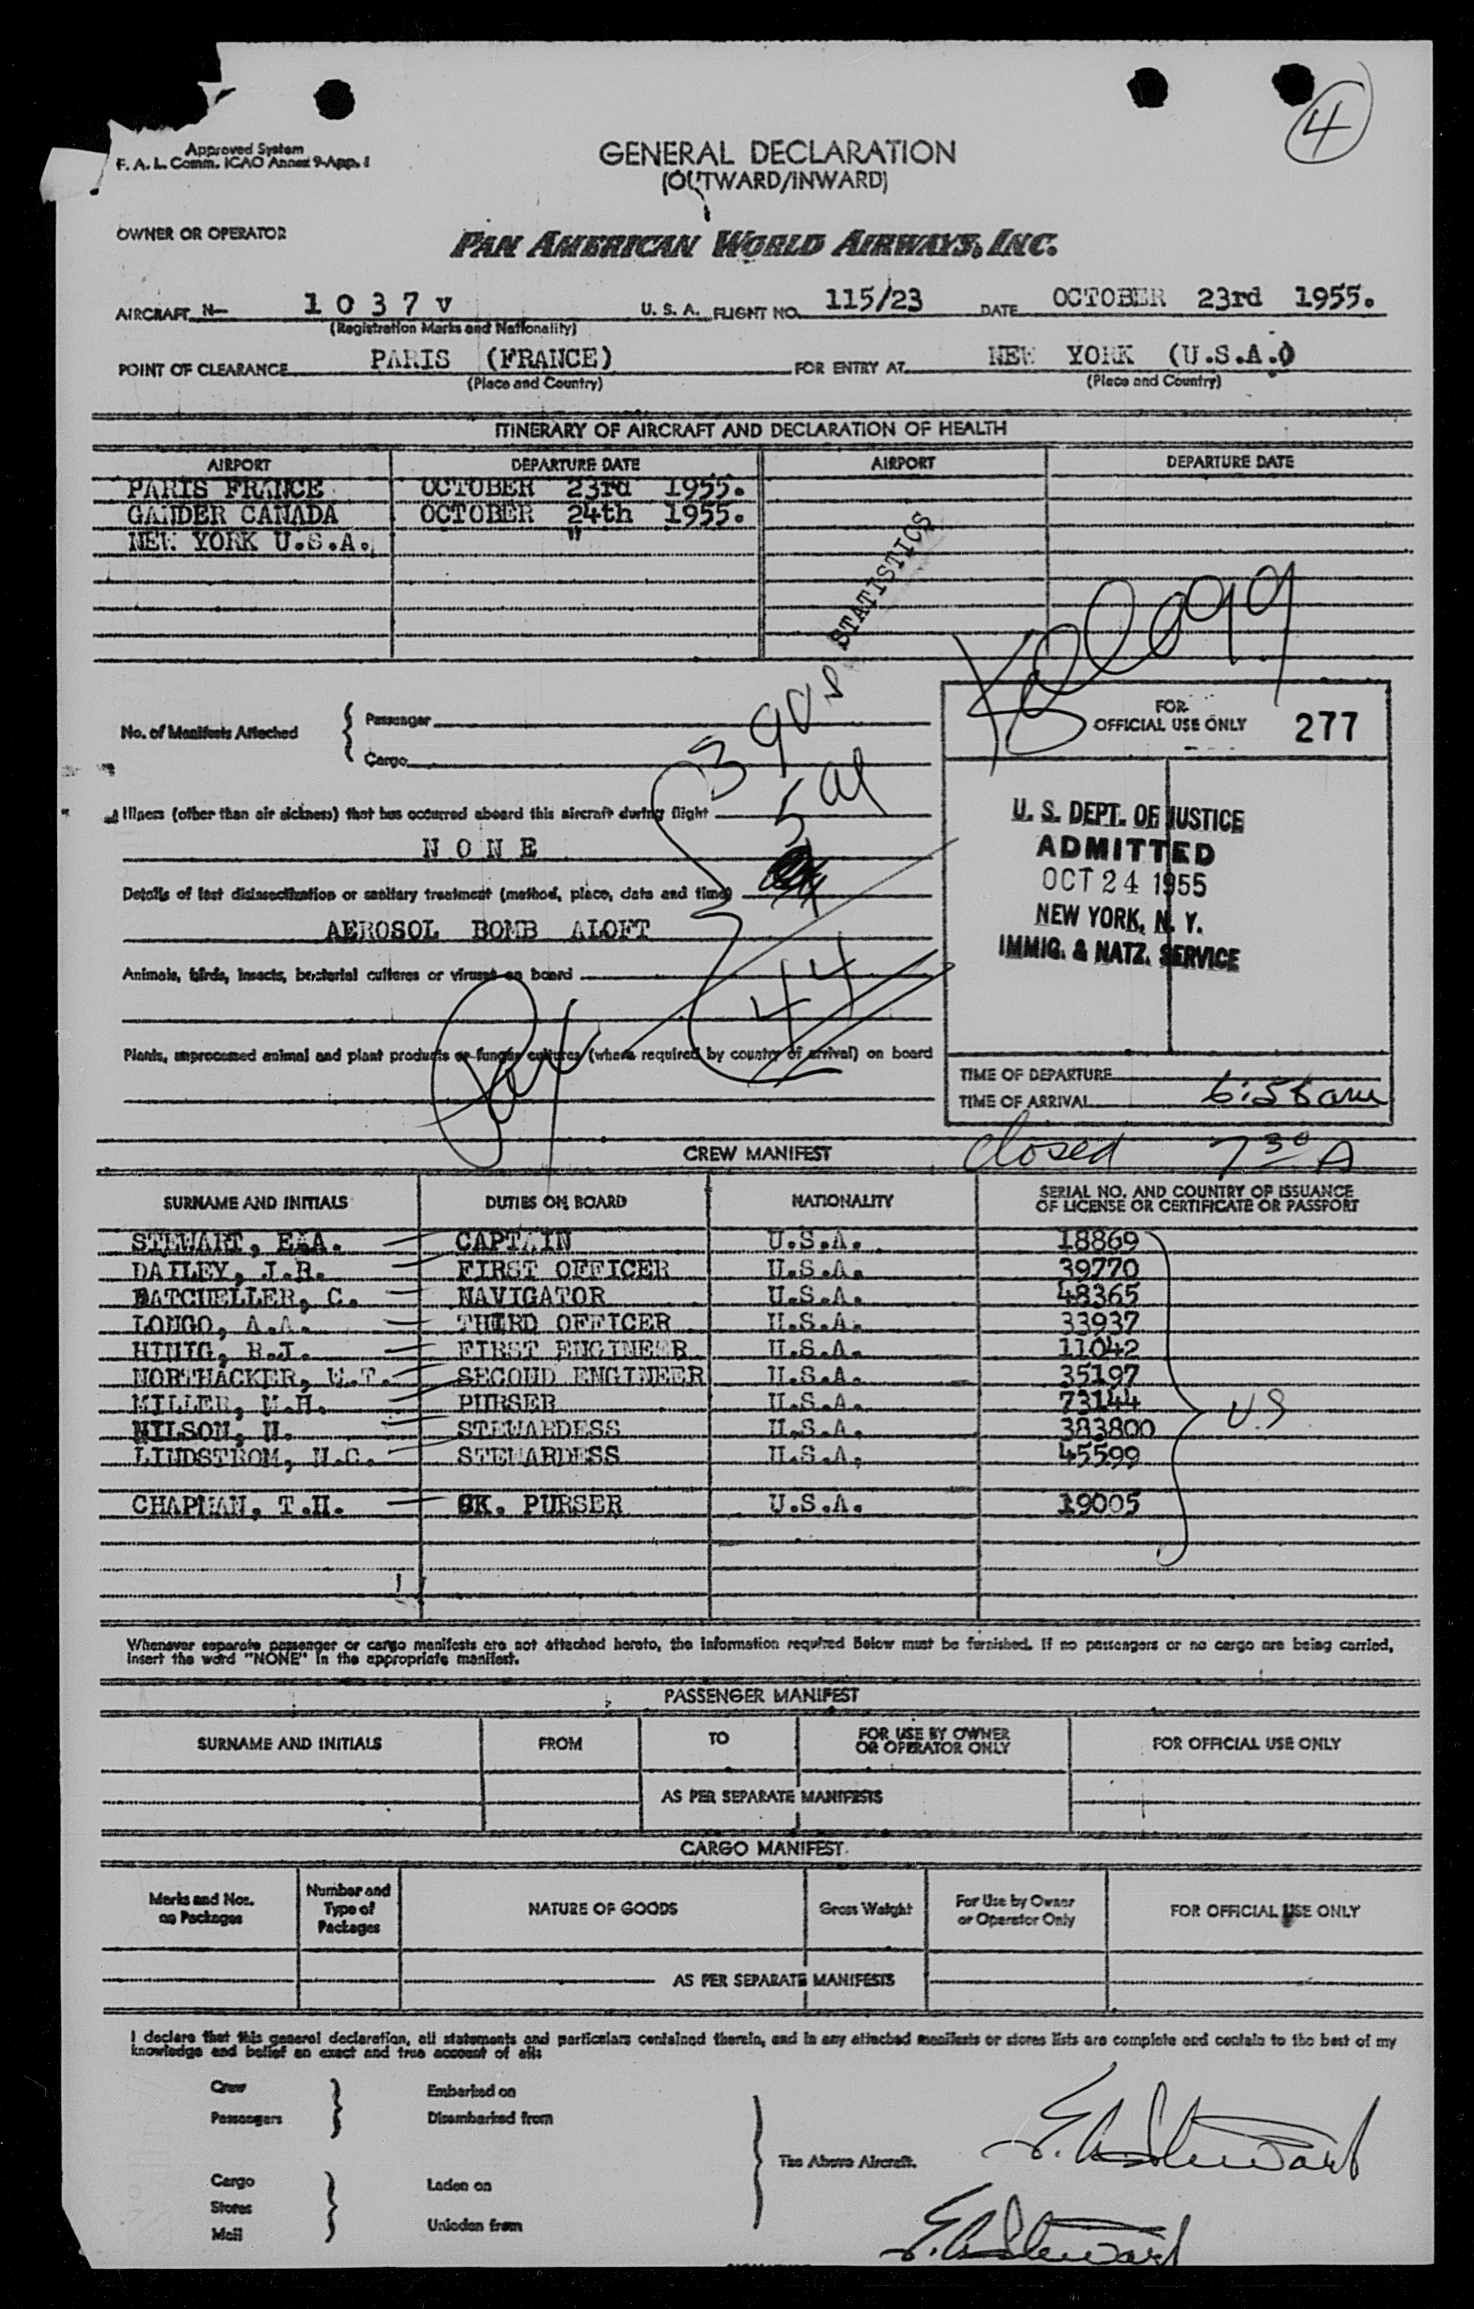 4
Approved System
F. A. L. Comm. ICAO Annex 9-App. 1
GENERAL DECLARATION
(OUTWARD/INWARD)
OWNER OR OPERATOR
PAN AMERICAN WORLD AIRWAYS, INC.
AIRCRAFT N- 1 0 3 7 v U. S. A. FLIGHT NO. 115/23 DATE OCTOBER 23rd 1955.
(Registration Marks and Nationality)
POINT OF CLEARANCE PARIS (FRANCE) FOR ENTRY AT NEW YORK (U.S.A.)
(Place and Country) (Place and Country)
ITINERARY OF AIRCRAFT AND DECLARATION OF HEALTH
AIRPORT DEPARTURE DATE AIRPORT DEPARTURE DATE
PARIS FRANCE OCTOBER 23rd 1955.
GANDER CANADA OCTOBER 24th 1955.
NEW YORK U.S.A. "
STATISTICS
Kellogg
No. of Manifests Attached { Passenger
Cargo
FOR
OFFICIAL USE ONLY 277
Illness (other than air sickness) that has occurred aboard this aircraft during flight
N O N E
Details of last disinsectization or sanitary treatment (method, place, date and time)
AEROSOL BOMB ALOFT
Animals, birds, insects, bacterial cultures or viruses on board
44
Plants, unprocessed animal and plant products or fungus cultures (where required by country of arrival) on board
U. S. DEPT. OF JUSTICE
ADMITTED
OCT 24 1955
NEW YORK, N. Y.
IMMIG. & NATZ. SERVICE
TIME OF DEPARTURE
TIME OF ARRIVAL 6:58 am
closed 7 30 A
CREW MANIFEST
SURNAME AND INITIALS DUTIES ON BOARD NATIONALITY SERIAL NO. AND COUNTRY OF ISSUANCE
OF LICENSE OR CERTIFICATE OR PASSPORT
STEWART, E.A. CAPTAIN U.S.A. 18869
DAILEY, J.R. FIRST OFFICER U.S.A. 39770
BATCHELLER, C. NAVIGATOR U.S.A. 48365
LONGO, A.A. THIRD OFFICER U.S.A. 33937
HINIG, R.J. FIRST ENGINEER U.S.A. 11042
NORTHACKER, W.T. SECOND ENGINEER U.S.A. 35197
MILLER, M.H. PURSER U.S.A. 73144
WILSON, N. STEWARDESS U.S.A. 383800
LINDSTROM, H.C. STEWARDESS U.S.A. 45599
CHAPMAN, T.H. CK. PURSER U.S.A. 19005
US
Whenever separate passenger or cargo manifests are not attached hereto, the information required below must be furnished. If no passengers or no cargo are being carried,
insert the word "NONE" in the appropriate manifest.
PASSENGER MANIFEST
SURNAME AND INITIALS FROM TO FOR USE BY OWNER
OR OPERATOR ONLY FOR OFFICIAL USE ONLY
AS PER SEPARATE MANIFESTS
CARGO MANIFEST
Marks and Nos.
on Packages Number and
Type of
Packages NATURE OF GOODS Gross Weight For Use by Owner
or Operator Only FOR OFFICIAL USE ONLY
AS PER SEPARATE MANIFESTS
I declare that this general declaration, all statements and particulars contained therein, and in any attached manifests or stores lists are complete and contain to the best of my
knowledge and belief an exact and true account of all:
Crew Embarked on
Passengers Disembarked from
The Above Aircraft.
Cargo Laden on
Stores
Mail Unladen from
E. A. Stewart
E. A. Stewart